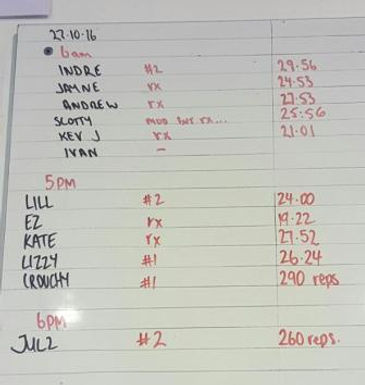 27.10.16
6am
INDRE #2 29.56
JAYNE rx 24.53
ANDREW rx 27.53
SCOTTY MOD but rx... 25:56
KEV J rx 21.01
IVAN -
5PM
LILL #2 24.00
EZ rx 19.22
KATE rx 27.52
LIZZY #1 26.24
CROUCHY #1 290 reps
6PM
JULZ #2 260 reps.